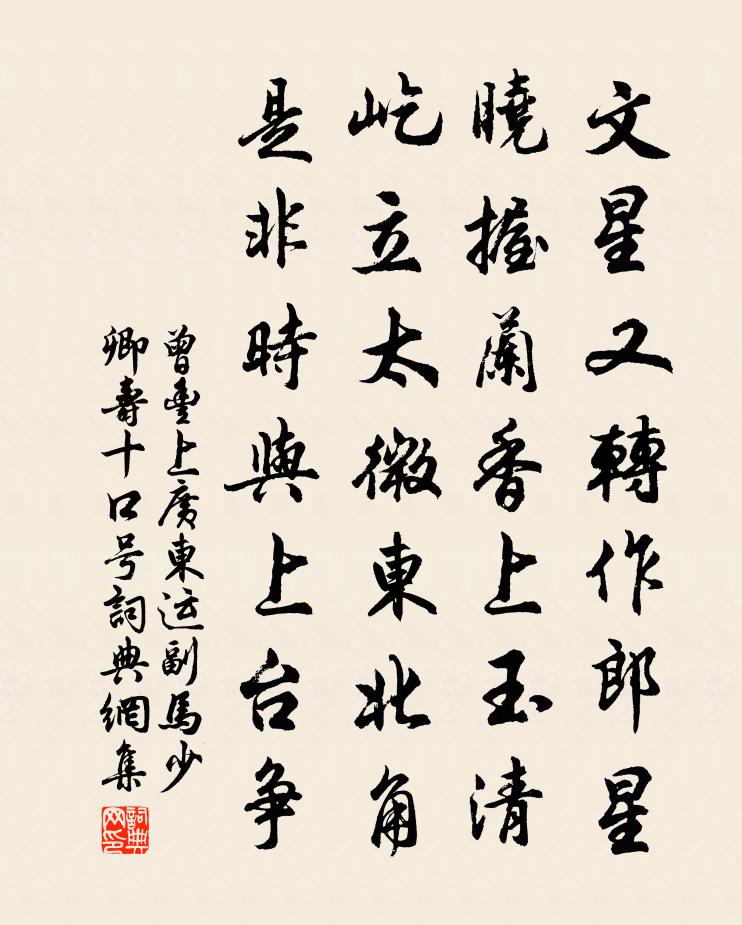 文星又轉作郎星
曉握蘭香上玉清
屹立太微東北角
是非時與上台爭
曾豐上廣東运副馬少
卿壽十口号詞典網集
詞典网印